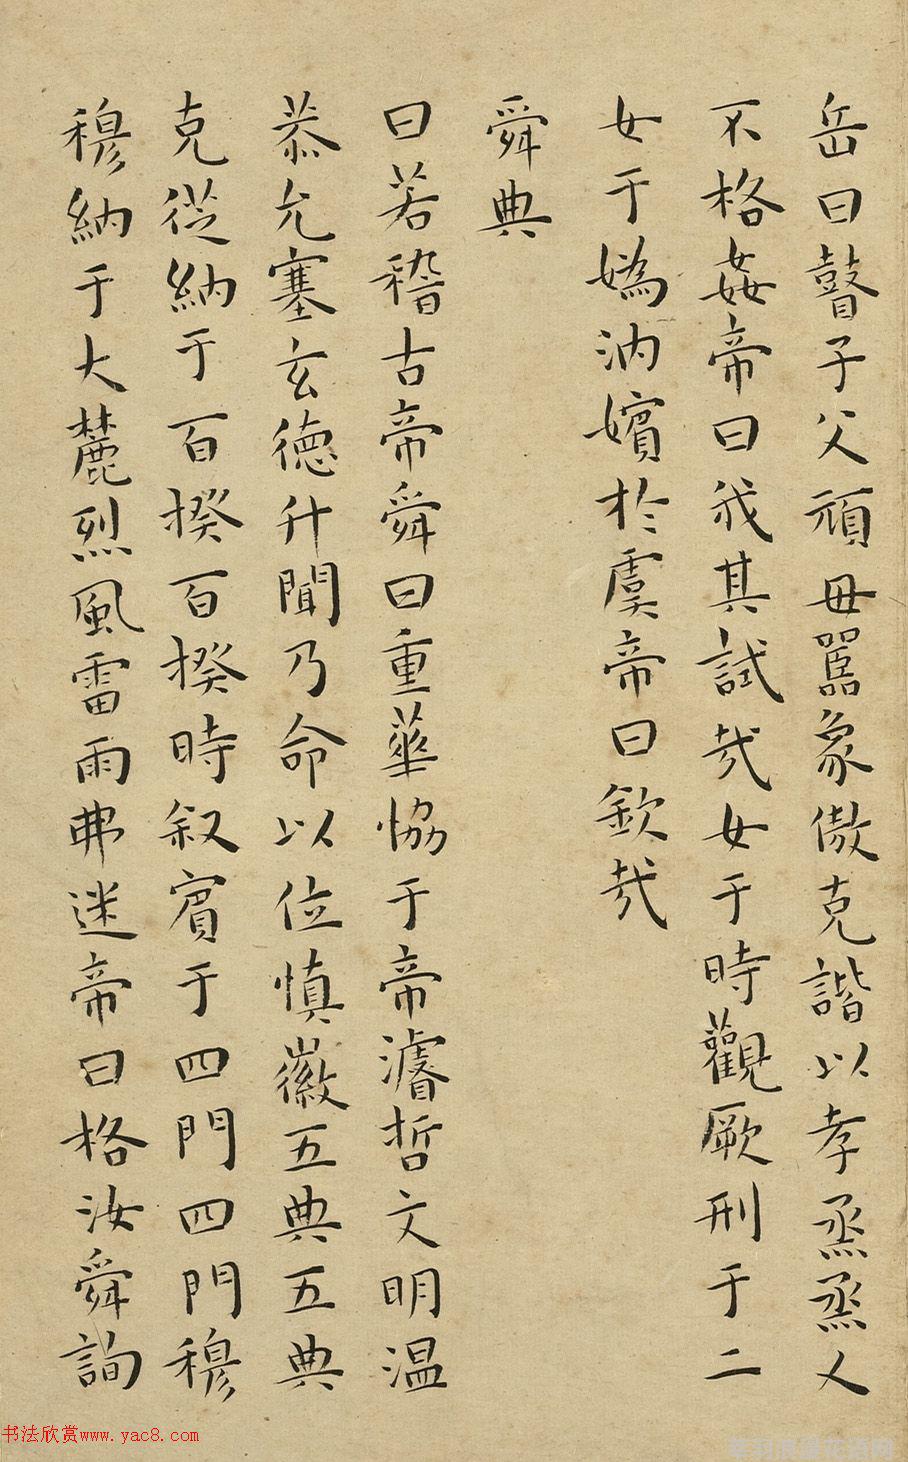 岳曰瞽子父頑母嚚象傲克諧以孝烝烝乂
不格姦帝曰我其試哉女于時觀厥刑于二
女于媯汭嬪於虞帝曰欽哉
舜典
曰若稽古帝舜曰重華恊于帝濬哲文明温
恭允塞玄德升聞乃命以位慎徽五典五典
克從納于百揆百揆時叙賓于四門四門穆
穆納于大麓烈風雷雨弗迷帝曰格汝舜詢
书法欣赏www.yac8.com